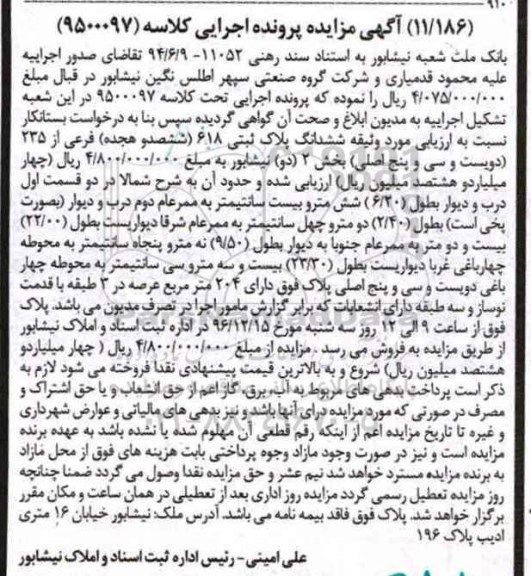 ۹۱۰
(۱۱/۱۸۶) آگهی مزایده پرونده اجرایی کلاسه (۹۵۰۰۰۹۷)
بانک ملت شعبه نیشابور به استناد سند رهنی ۱۱۰۵۲- ۹۴/۶/۹ تقاضای صدور اجراییه
علیه محمود قدمیاری و شرکت گروه صنعتی سپهر اطلس نگین نیشابور در قبال مبلغ
۴/۰۷۵/۰۰۰/۰۰۰ ریال را نموده که پرونده اجرایی تحت کلاسه ۹۵۰۰۰۹۷ در این شعبه
تشکیل اجراییه به مدیون ابلاغ و صحت آن گواهی گردیده سپس بنا به درخواست بستانکار
نسبت به ارزیابی مورد وثیقه ششدانگ پلاک ثبتی ۶۱۸ (ششصدو هجده) فرعی از ۲۳۵
(دویست و سی و پنج اصلی) بخش ۲ (دو) نیشابور به مبلغ ۴/۸۰۰/۰۰۰/۰۰۰ ریال (چهار
میلیاردو هشتصد میلیون ریال) ارزیابی شده و حدود آن به شرح شمالا در دو قسمت اول
درب و دیوار بطول (۶/۲۰) شش مترو بیست سانتیمتر به ممرعام دوم درب و دیوار (بصورت
پخی است) بطول (۲/۴۰) دو مترو چهل سانتیمتر به ممرعام شرقا دیواریست بطول (۲۲/۰۰)
بیست و دو متر به ممرعام جنوبا به دیوار بطول (۹/۵۰) نه مترو پنجاه سانتیمتر به محوطه
چهارباغی غربا دیواریست بطول (۲۳/۳۰) بیست و سه مترو سی سانتیمتر به محوطه چهار
باغی دویست و سی و پنج اصلی پلاک فوق دارای ۲۰۴ متر مربع عرصه در ۳ طبقه با قدمت
نوساز و سه طبقه دارای انشعابات که برابر گزارش مامور اجرا در تصرف مدیون می باشد. پلاک
فوق از ساعت ۹ الی ۱۲ روز سه شنبه مورخ ۹۶/۱۲/۱۵ در اداره ثبت اسناد و املاک نیشابور
از طریق مزایده به فروش می رسد . مزایده از مبلغ ۴/۸۰۰/۰۰۰/۰۰۰ ریال ( چهار میلیاردو
هشتصد میلیون ریال) شروع و به بالاترین قیمت پیشنهادی نقدا فروخته می شود لازم به
ذکر است پرداخت بدهی های مربوط به آب، برق، گاز اعم از حق انشعاب و یا حق اشتراک و
مصرف در صورتی که مورد مزایده درای آنها باشد و نیز بدهی های مالیاتی و عوارض شهرداری
و غیره تا تاریخ مزایده اعم از اینکه رقم قطعی آن مهلوم شده یا نشده باشد به عهده برنده
مزایده است و نیز در صورت وجود مازاد وجوه پرداختی بابت هزینه های فوق از محل مازاد
به برنده مزایده مسترد خواهد شد نیم عشر و حق مزایده نقدا وصول می گردد ضمنا چنانچه
روز مزایده تعطیل رسمی گردد مزایده روز اداری بعد از تعطیلی در همان ساعت و مکان مقرر
برگزار خواهد شد. پلاک فوق فاقد بیمه نامه می باشد. آدرس ملک: نیشابور خیابان ۱۶ متری
ادیب پلاک ۱۹۶
علی امینی- رئیس اداره ثبت اسناد و املاک نیشابور